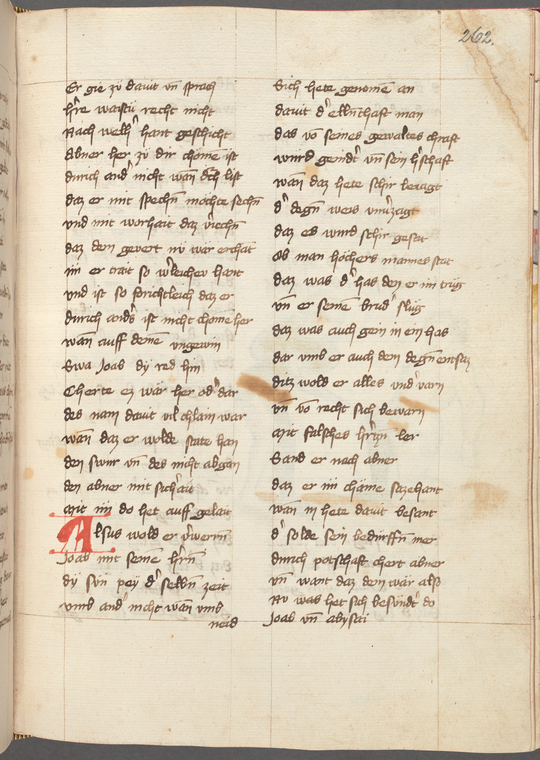 262.
Er gie zü dauit vn̄ sprach
hr̄e waistu recht nicht
Nach well hant geschicht
Abner her zü dir chome ist
durich and' nicht wan dch list
daz er mit spechn̄ mochte sechn̄
vnd mit worhait daz
daz dem gevert nv wär erchāt
im er trait so hant
vnd ist so daz er
durich anders ist nicht chome her
wan auff deine vngewin
Swa Joab dy red hin
Cherte ez wär her od' dar
des nam dauit vil chlain war
wan daz er wolde state han
den swur vn̄ des nicht abgan
den abner mit
mit im do het auff gelait
Alsus wold er
Joab mit seine hr̄n
dy sün pey d' selbn̄ zeit
vmb and' nicht wan vmb
neid
Sich hete genome an
dauit d' ellnthaft man
das vo seines gewaltes chraft
wurd gemd't vn̄ sein h'schaft
wan daz hete schir betagt
d' degn̄ weis vnu'zagt
daz es wurd schir gesait
Ob man höchers mannes stat
daz was d' has den er im trüg
vn̄ er seine brud' slüg
daz was auch gein in ein has
dar vmb er auch dem degn̄ entsaz
ditz wold er alles vnd'varn
vn̄ vo recht sich bewarn
mit falsches ler
Sand er nach abner
daz er im chäme sazehant
wan in hete dauit besant
d' solde sein bedurffn̄ mer
durich potschaft chert abner
vn̄ want daz dem wär also
Nv was het sich besund't do
Joab vn̄ abysai